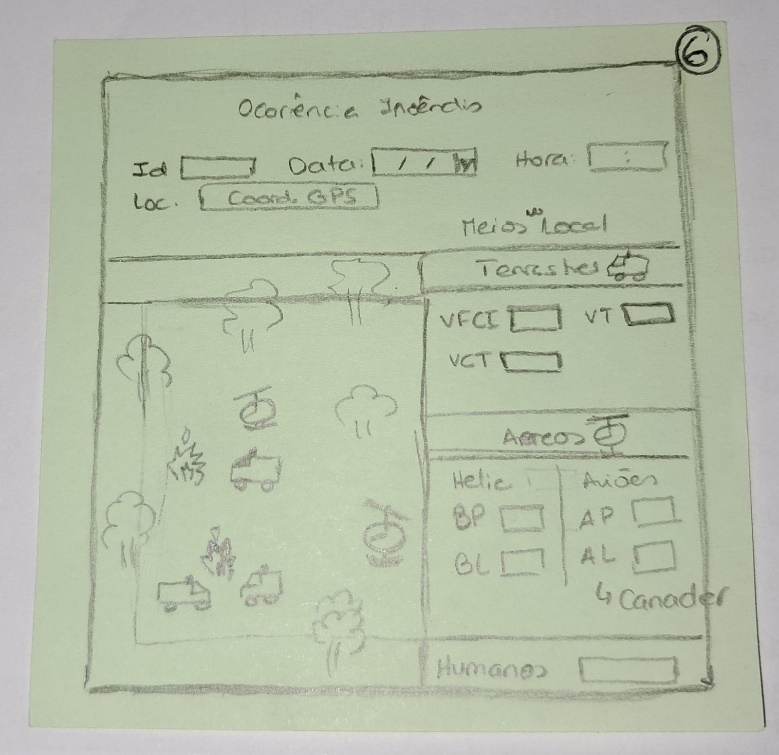 6
Ocorência Incêndio
Id Data: / / Hora: :
Loc. Coord. GPS
Meios no Local
Terrestres
VFCI VT
VCT
Aereos
Helic Aviões
BP AP
BL AL
↳ Canader
Humanos